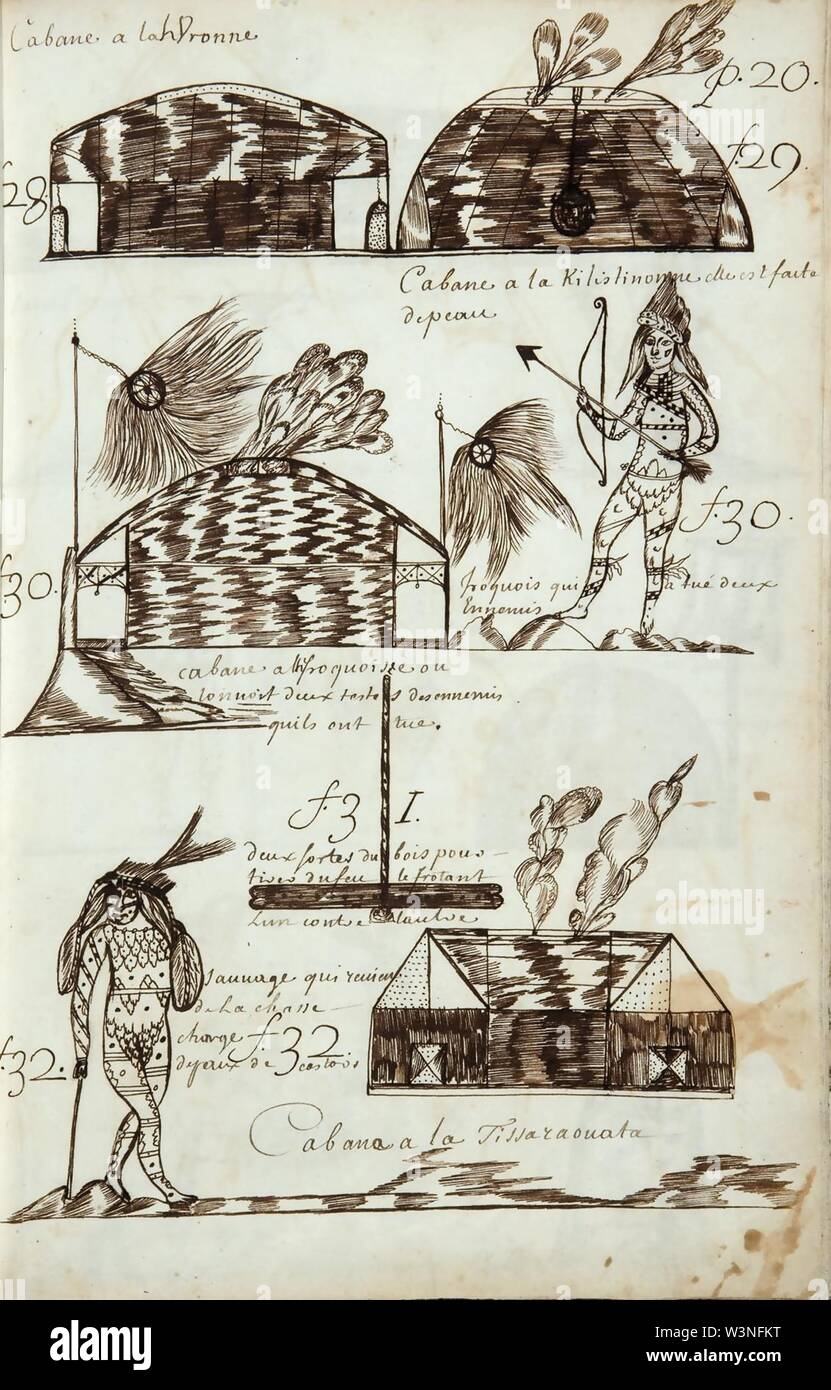 Cabane a lahVronne
p. 20.
f. 29.
28
Cabane a la Kilistinonne elle est faite
depeau
f. 30.
f. 30.
Iroquois qui a tué deux
Ennemis
cabane a l'Iroquoisse ou
lonvoit deux testes desennemis
quils ont tue.
f. 3 I.
deux sortes du bois pour
tirer du feu le frotant
Lun contre Lautre
sauvage qui revient
de La chasse
charge f. 32
depeaux de castors
f. 32.
Cabana a la Tissaraouata
alamy
Image ID: W3NFKT
www.alamy.com